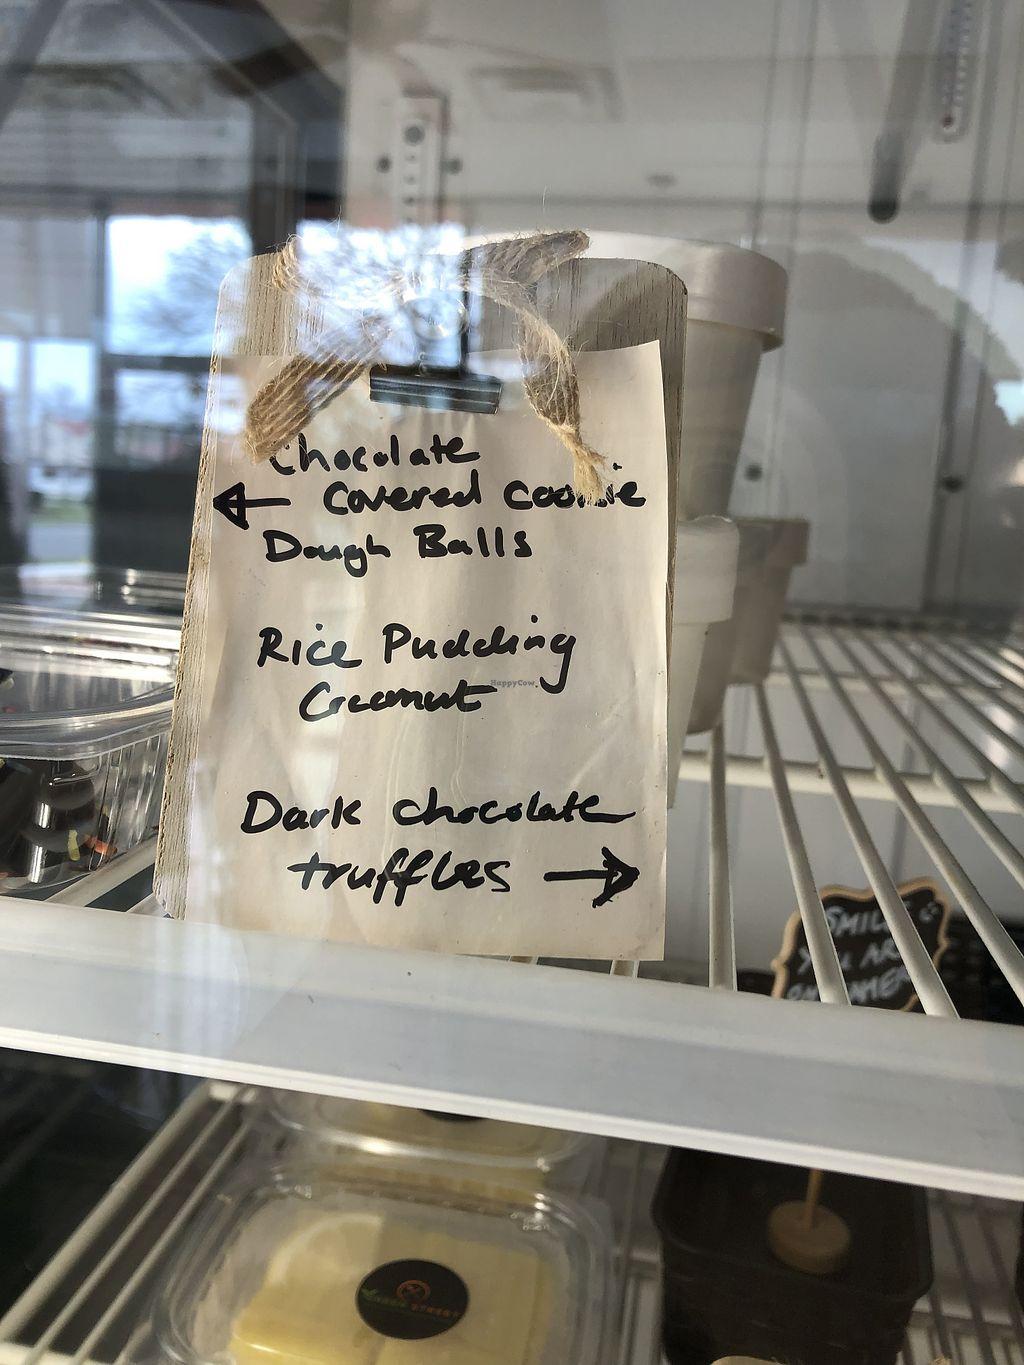 Chocolate
← Covered Cookie
Dough Balls
Rice Pudding
Coconut
HappyCow
Dark chocolate
truffles →
SMILE
YOU ARE
ON CAMERA
STREET